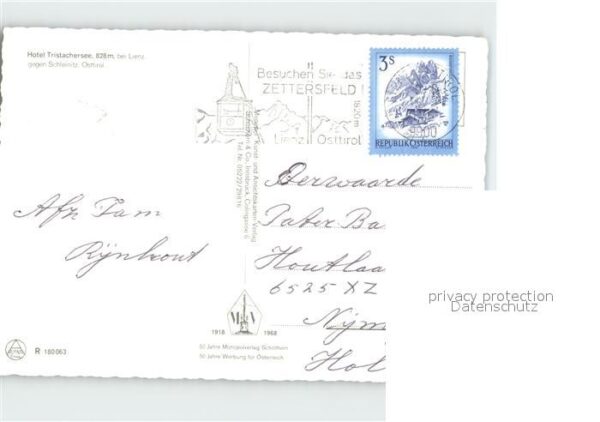 Hotel Tristachersee, 828m, bei Lienz
gegen Schleinitz, Osttirol
Besuchen Sie das
ZETTERSFELD !
1820m
Lienz Osttirol
3s
REPUBLIK ÖSTERREICH
9900
Kunst- und Ansichtskarten-Verlag
& Co. Innsbruck,
Tel. Nr.
Afz Fam
Rijnhout
Eerwaarde
Pater Ba
Houtlaa
6525 XZ
Nijm
Hol
1918 1968
50 Jahre Monopolverlag Schöllhorn
50 Jahre Werbung für Österreich
R 180063
privacy protection
Datenschutz